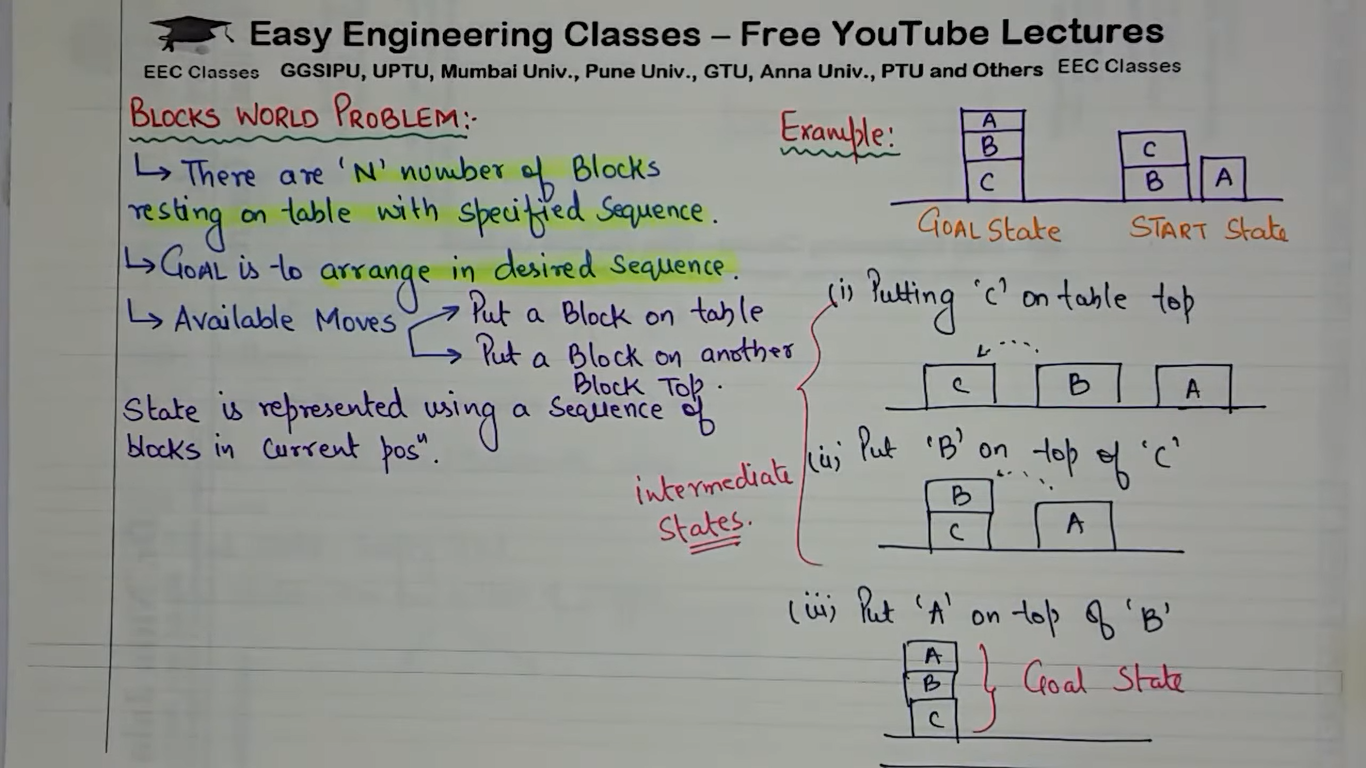 Easy Engineering Classes – Free YouTube Lectures
EEC Classes GGSIPU, UPTU, Mumbai Univ., Pune Univ., GTU, Anna Univ., PTU and Others EEC Classes
BLOCKS WORLD PROBLEM:-
↳ There are 'N' number of Blocks
resting on table with specified Sequence.
↳ GOAL is to arrange in desired Sequence.
↳ Available Moves → Put a Block on table
→ Put a Block on another
Block Top.
State is represented using a Sequence of
blocks in current posⁿ.
Example:
A
B
C
GOAL State
C
B
A
START State
intermediate
States.
(i) Putting 'C' on table top
C B A
(ii) Put 'B' on top of 'C'
B
C
A
(iii) Put 'A' on top of 'B'
A
B
C
Goal State